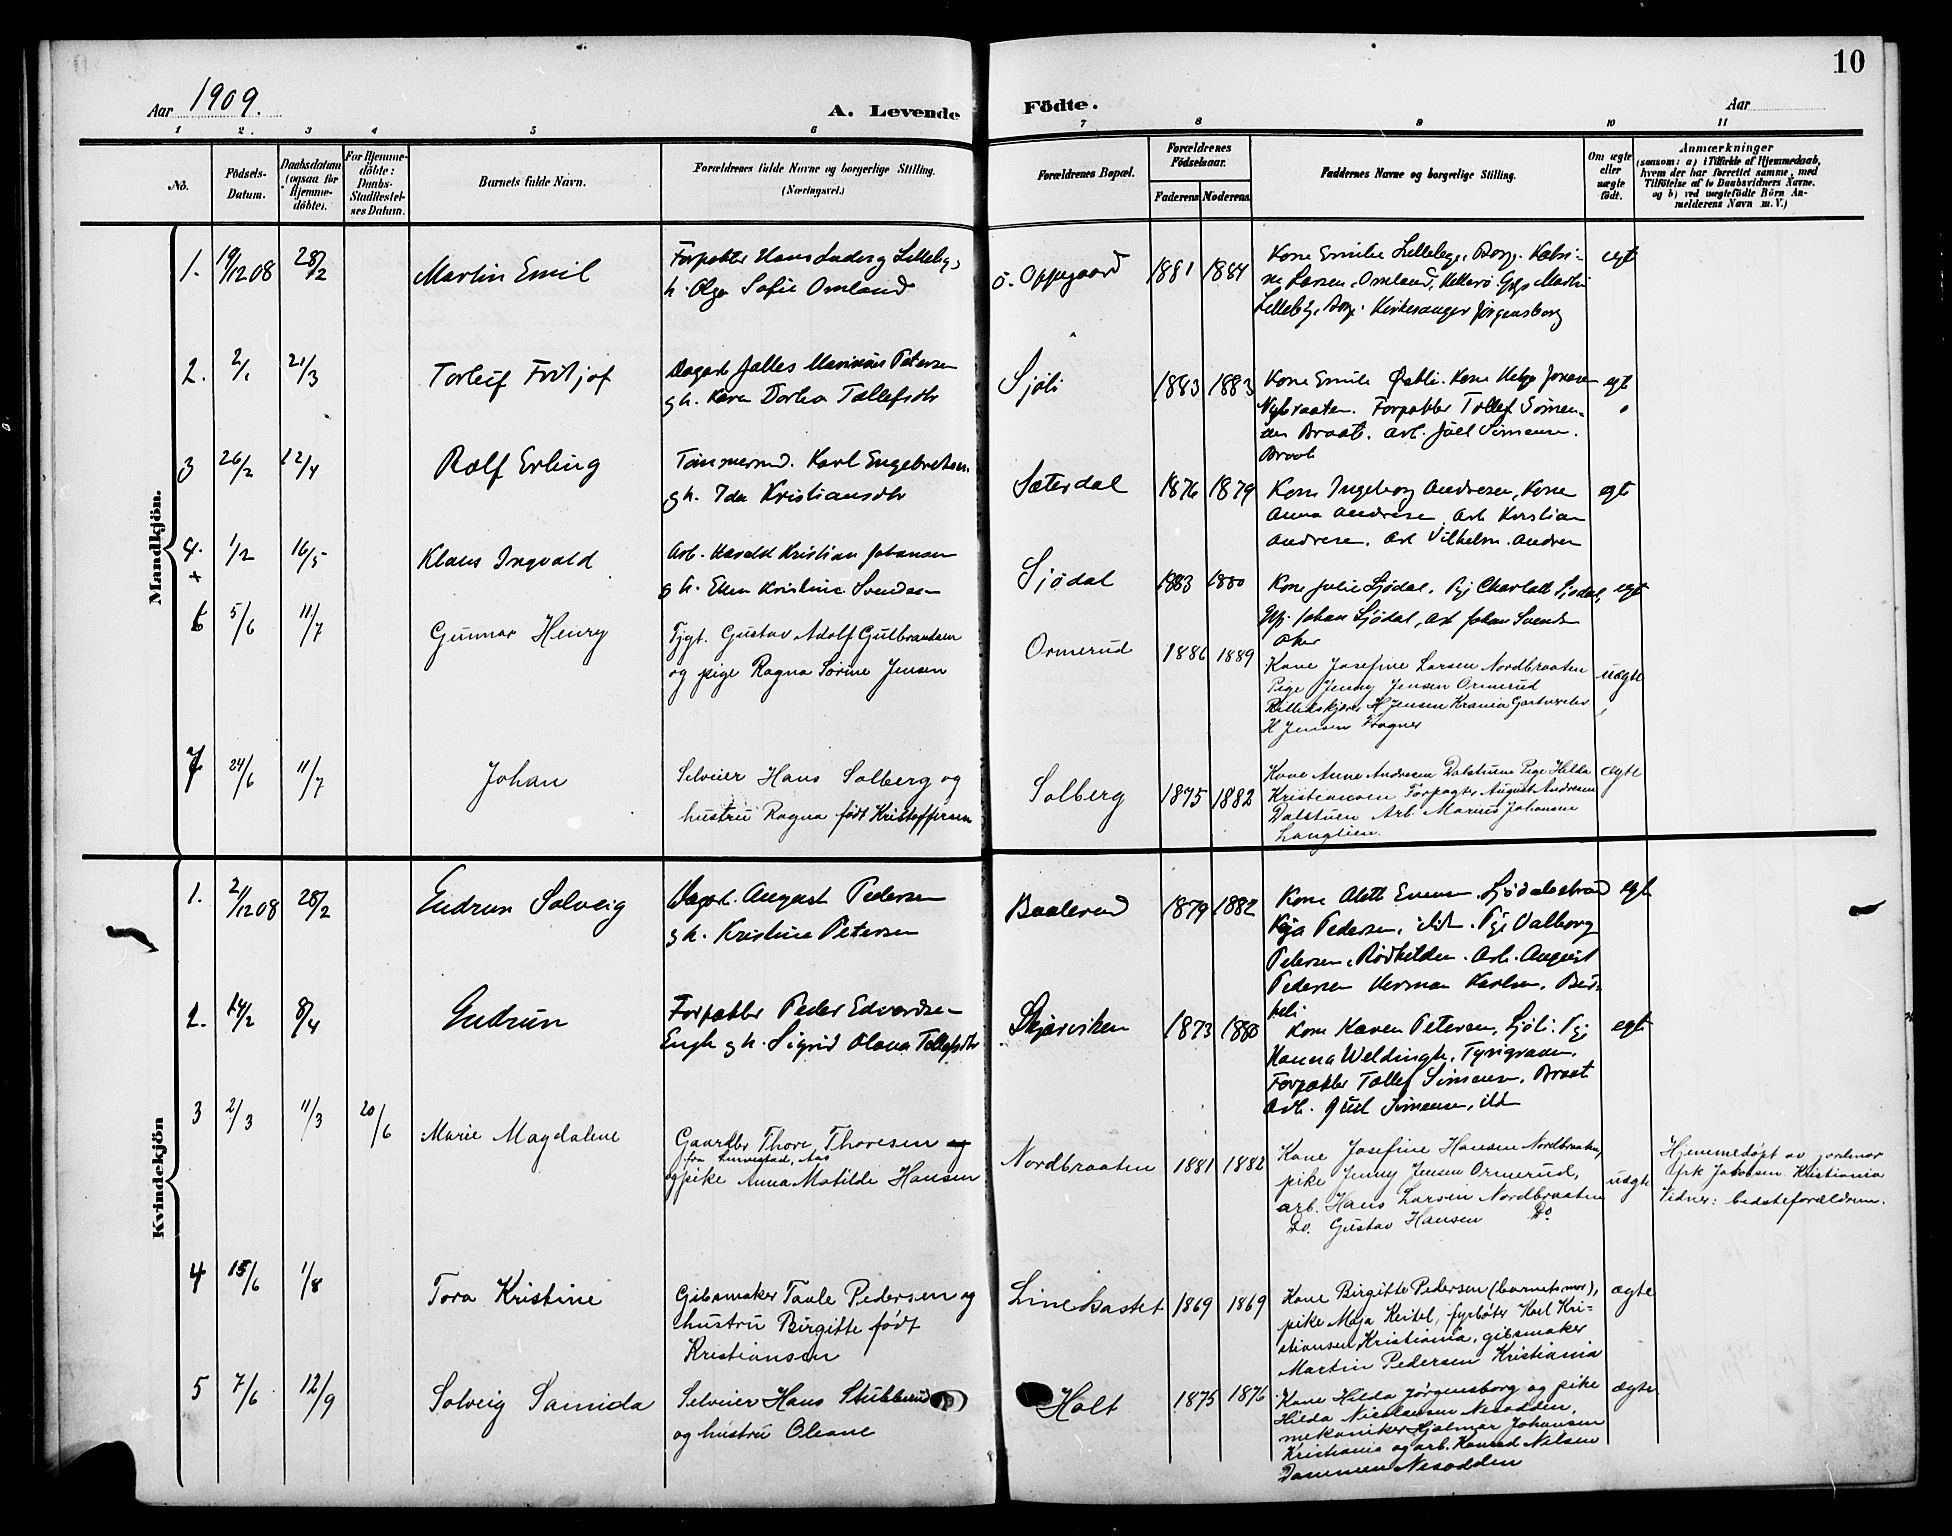 10
Aar 1909.
A. Levende Födte.
Aar
1 2. 3 4 5 6 7 8 9 10 11
No.
Födsels-Datum.
Daabsdatum (ogsaa for Hjemme-döbte).
For Hjemme-döbte: Daabs-Stadfæstel-ses Datum.
Barnets fulde Navn.
Forældrenes fulde Navne og borgerlige Stilling.
(Næringsvei.)
Forældrenes Bopæl.
Forældrenes Födselsaar.
Faderens Moderens
Faddernes Navne og borgerlige Stilling.
Om ægte eller uægte födt.
Anmærkninger
(saasom: a) i Tilfælde af Hjemmedaab,
hvem der har forrettet samme, med
Tilföielse af to Daabsvidners Navne.
og b) ved uægtefödte Börn An-
melderens Navn m. V.)
Mandkjön.
1. 19/12 08 28/2 Martin Emil
Forpakter Hans Ludvig Lilleby,
h. Olga Sofie Omland
ö. Oppegaard 1881 1884
Kone Emilie Lilleby, Katri-
ne Larsen, Omland, Martin
Lilleby, Kirkesanger Jörgensborg
egt
2. 2/1 21/3 Torleif Fritjof
Dagarb Marinius Petersen
g h. Karen Dortea Tollefsdtr
Sjöli 1883 1883
Kone Emilie Østli. Kone Helga Jonasen
Nybraaten. Forpakter Tollef Simen-
sen Braat. Arb. Joel Simensen.
Braat
egt
3 26/2 12/4 Rolf Erling
Tömmermd. Karl Engebretsen
g h. Ida Kristiansdtr
Sæterdal 1876 1879
Kone Ingeborg Andresen, Kone
Anna Andresen, Arb Kristian
Andresen. Arb Vilhelm Andresen
egt
4. + 1/2 16/5 Klaus Ingvald
Arb. Harald Kristian Johansen
g h. Ellen Kristine Svendsen
Sjödal 1883 1880
Kone Julie Sjödal, Pg Charlotte Sjödal,
Gp. Johan Sjödal, Arb Johan Svends
egt
6 5/6 11/7 Gunnar Henry
Tjgt. Gustav Adolf Gulbrandsen
og pige Ragna Sörine Jensen
Ormerud 1886 1889
Kone Josefine Larsen Nordbraaten
Pige Jenny Jensen Ormerud
H Jensen Krania
H Jensen Frogner
uægte
7 24/6 11/7 Johan
Selveier Hans Solberg og
hustru Ragna født Kristoffersen
Solberg 1875 1882
Kone Anne Andresen Dalstuen Pige Hilda
Kristiansen Forpagter August Andresen
Dalstuen Arb. Marius Johansen
Langlien.
ægte
Kvindekjön
1. 21/12 08 28/2 Gudrun Solveig
Dagarb. August Pedersen
g h. Kristine Petersen
Baalerud 1879 1882
Kone Alett Evensen Sjödalstrand
Kaja Pedersen, ibid. Pg. Valborg
Petersen, Rödkilden. Arb. August
Pedersen Herman Karlsen, Bir-
keli
egt
2. 14/2 8/4 Gudrun
Forpakter Peder Edvardsen
Engh g h. Sigrid Olava Tollefsdtr
Skjærviken 1873 1880
Kone Karen Petersen, Sjöli. Pg
Hanna Weldingh, Tyrigraven.
Forpakter Tollef Simensen. Braat
Arb. Joel Simensen, ibd
egt
3 2/3 11/3 20/6 Marie Magdalene
Gaardbr Thore Thoresen og
fra Aas
og pike Anna Matilde Hansen
Nordbraaten 1881 1882
Kone Josefine Hansen Nordbraaten,
pike Jenny Jensen Ormerud,
arb. Hans Larsen Nordbraaten
Do. Gustav Hansen Do.
uægte
Hjemmedøpt av jordmor
frk Jakobsen Kristiania
Vidner: bedsteforældrene.
4 15/6 1/8 Tora Kristine
Gibsmaker Taule Pedersen og
hustru Birgitte født
Kristiansen
Linekastet 1869 1869
Kone Birgitte Pedersen (barnets mor),
pike Maja Keitel, fyrbøter Karl Kri-
stiansen Kristiania, gibsmaker
Martin Pedersen Kristiania
ægte
5 7/6 12/9 Solveig Samida
Selveier Hans Stubberud
og hustru Oleane
Holt 1875 1876
Kone Hilda Jørgensborg og pike
Hilda Nicolaisen Nesodden,
mekaniker Hjalmar Johansen
Kristiania og arb. Konrad Nilsen
Dammen Nesodden
ægte